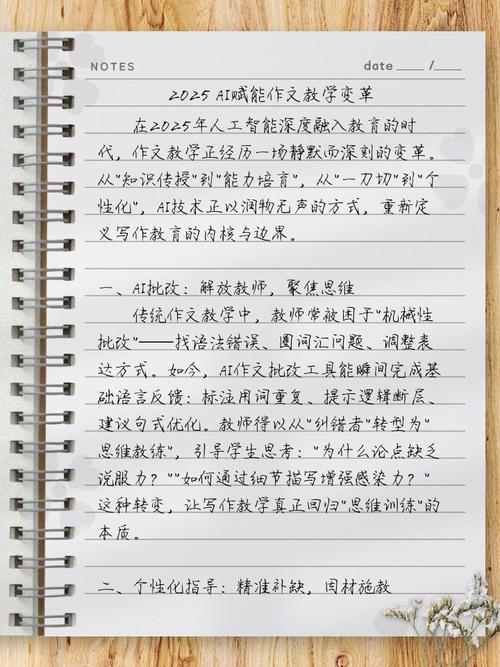 NOTES
date ____ /____
2025 AI赋能作文教学变革
在2025年人工智能深度融入教育的时
代，作文教学正经历一场静默而深刻的变革。
从"知识传授"到"能力培育"，从"一刀切"到"个
性化"，AI技术正以润物无声的方式，重新定
义写作教育的内核与边界。
一、AI批改：解放教师，聚焦思维
传统作文教学中，教师常被困于"机械性
批改"——找语法错误、圈词汇问题、调整表
达方式。如今，AI作文批改工具能瞬间完成基
础语言反馈：标注用词重复、提示逻辑断层、
建议句式优化。教师得以从"纠错者"转型为"
思维教练"，引导学生思考："为什么论点缺乏
说服力？""如何通过细节描写增强感染力？"
这种转变，让写作教学真正回归"思维训练"的
本质。
二、个性化指导：精准补缺，因材施教